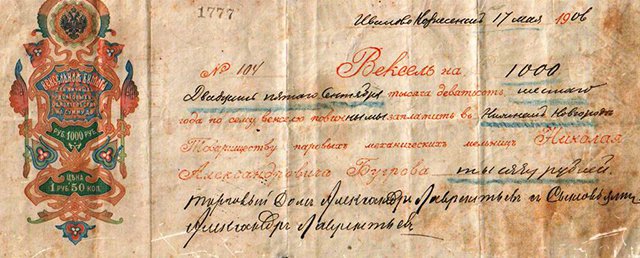 1777
Иваново Вознесенск 17 мая 1906
№ 104 Вексель на 1000
Двадцать пятаго Сентября тысяча девятьсотъ шестаго
года по сему векселю повинны мы заплатить въ Нижнемъ Новгородѣ
Товариществу паровыхъ механическихъ мельницъ Николая
Александровича Бугрова тысячу рублей.
Торговый Домъ Александръ Лаврентьевъ съ Сыновьями
Александръ Лаврентьевъ
ВЕКСЕЛЬНАЯ БУМАГА
РУБ. 1000 РУБ.
ЦѢНА
1 РУБ 50 КОП.